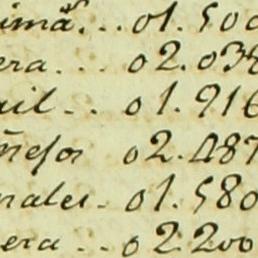 imã... 01.500
era... 02.038
ail... 01.916
ñejos 02.487
nales. 01.580
era... 02.200